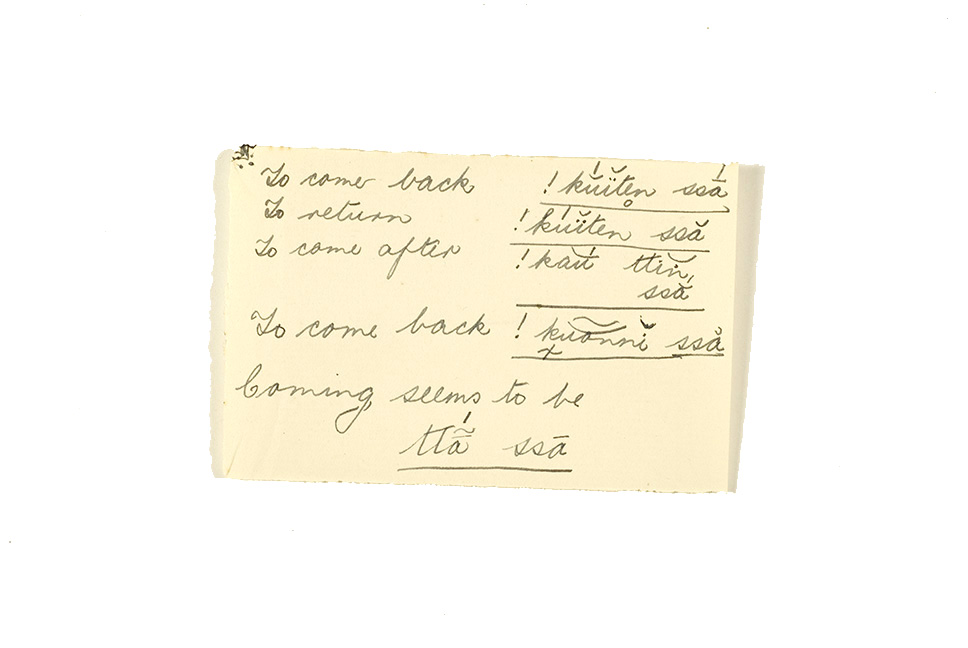 To come back !kúĭten ssā́
To return !kúĭten ssă
To come after !kaṹ ttiñ,
ssă
To come back !kũonnĭ sså
Coming seems to be
ttã́ ssā